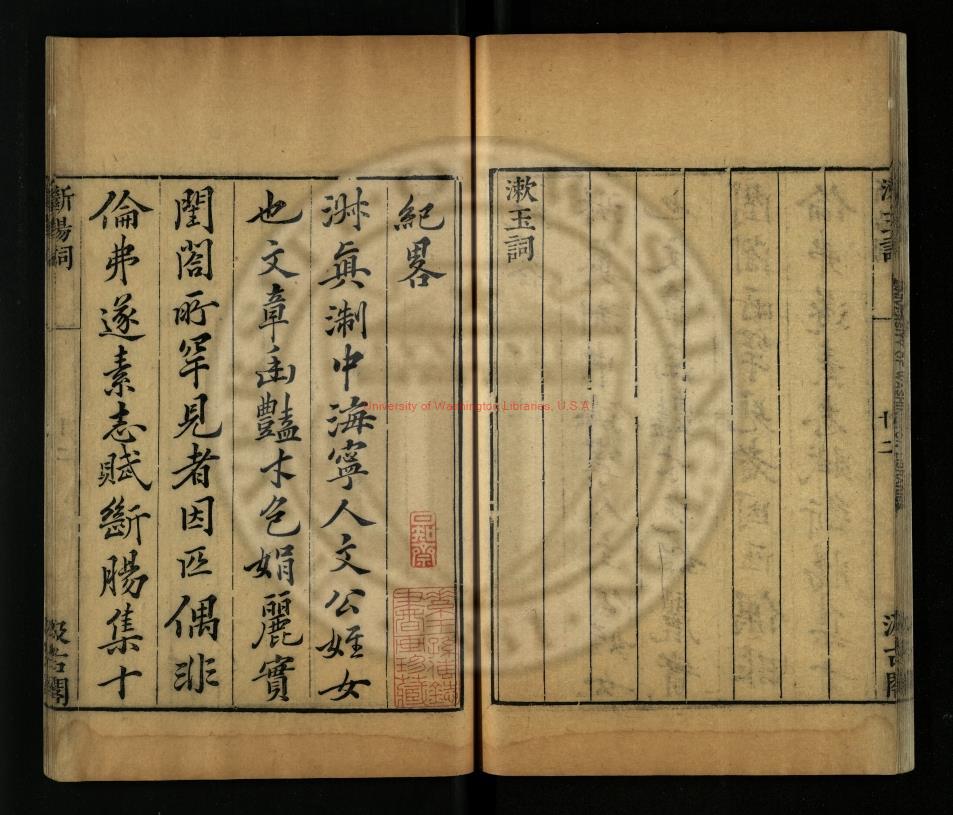 漱玉詞
漱玉詞
廿二
汲古閣
紀畧
淑眞淛中海寧人文公姪女
也文章幽豔才色娟麗實
閨閣所罕見者因匹偶非
倫弗遂素志賦斷腸集十
斷腸詞
汲古閣
University of Washington Libraries, U.S.A.